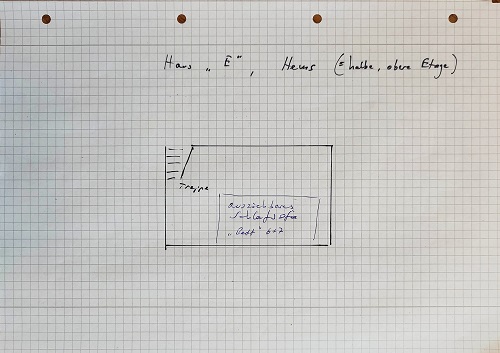 Haus „E“, Heuss (= halbe, obere Etage)
Treppe
ausziehbares
Schlafsofa
„Bett“ 6+7